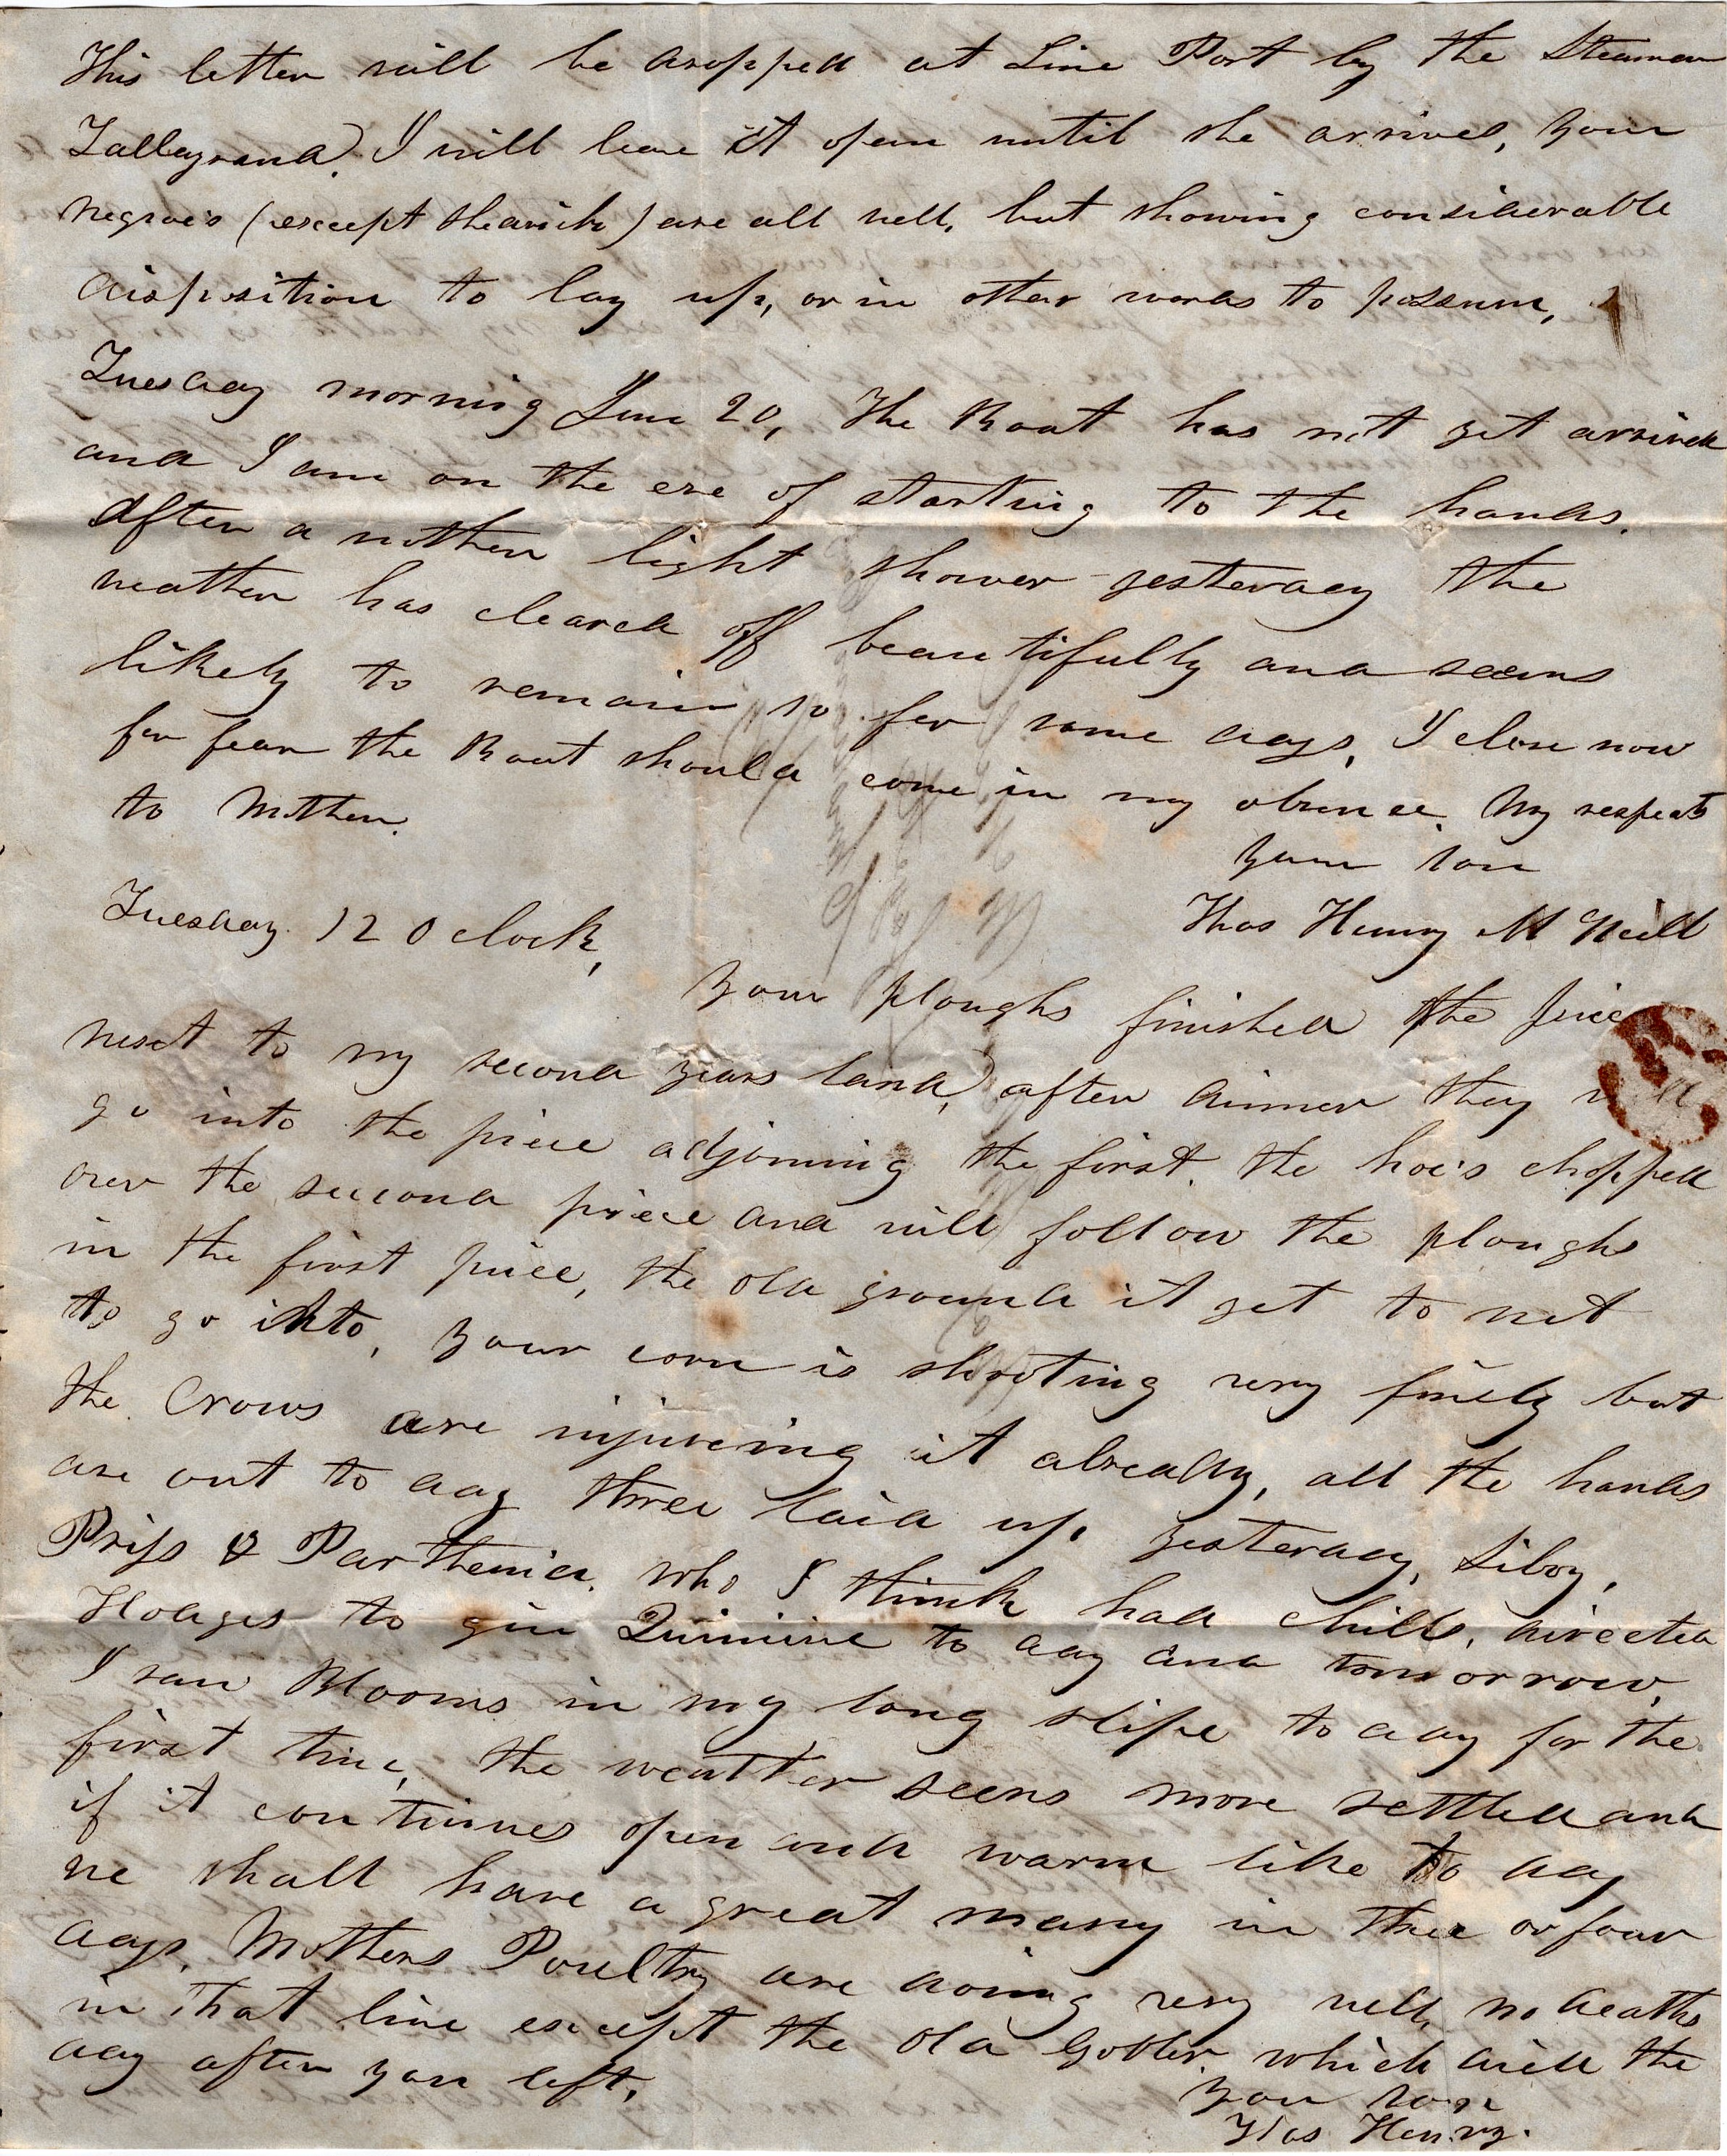 This letter will be dropped at Line Port by the Steamer
Talleyrand. I will leave it open until she arrives, your
negroe's (except the sick) are all well, but showing considerable
disposition to lay up, or in other words to possum,
Tuesday morning June 20, The Boat has not yet arrived
and I am on the eve of starting to the hands.
After a nother light shower yesterday the
weather has cleared off beautifully and seems
likely to remain so for some days, I close now
for fear the Boat should come in my absence. My respects
to Mother.
Your son
Thos Henry McNeill
Tuesday 12 O clock,
Your ploughs finished the piece
next to my second years land, after dinner they will
go into the piece adjoining the first. the hoe's chopped
over the second piece and will follow the ploughs
in the first piece, the old ground it yet to wet
to go into, your corn is shooting very finely but
the Crows are injureing it already, all the hands
are out to day three laid up yesterday, Siboy,
Priss & Parthenia. who I think had chills, directed
Hodges to give Quinine to day and tomorrow,
I saw Blooms in my long slipe to day for the
first time, the weather seems more settled and
if it continues open and warm like to day
we shall have a great many in three or four
days. Mothers Poultry are doing very well, no deaths
in that line except the old Gobler. which died the
day after you left,
You son
Thos Henry.